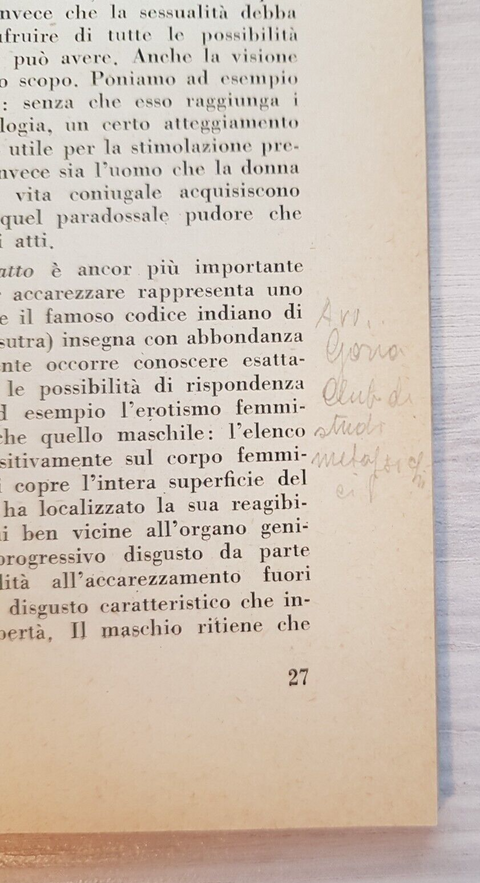 nvece che la sessualità debba
ufruire di tutte le possibilità
può avere. Anche la visione
o scopo. Poniamo ad esempio
: senza che esso raggiunga i
logia, un certo atteggiamento
utile per la stimolazione pre-
nvece sia l'uomo che la donna
vita coniugale acquisiscono
quel paradossale pudore che
i atti.
atto è ancor più importante
accarezzare rappresenta uno
e il famoso codice indiano di
sutra) insegna con abbondanza
nte occorre conoscere esatta-
le possibilità di rispondenza
d esempio l'erotismo femmi-
che quello maschile: l'elenco
sitivamente sul corpo femmi-
i copre l'intera superficie del
ha localizzato la sua reagibi-
i ben vicine all'organo geni-
progressivo disgusto da parte
lità all'accarezzamento fuori
disgusto caratteristico che in-
pertà, Il maschio ritiene che
Club di
studi
27